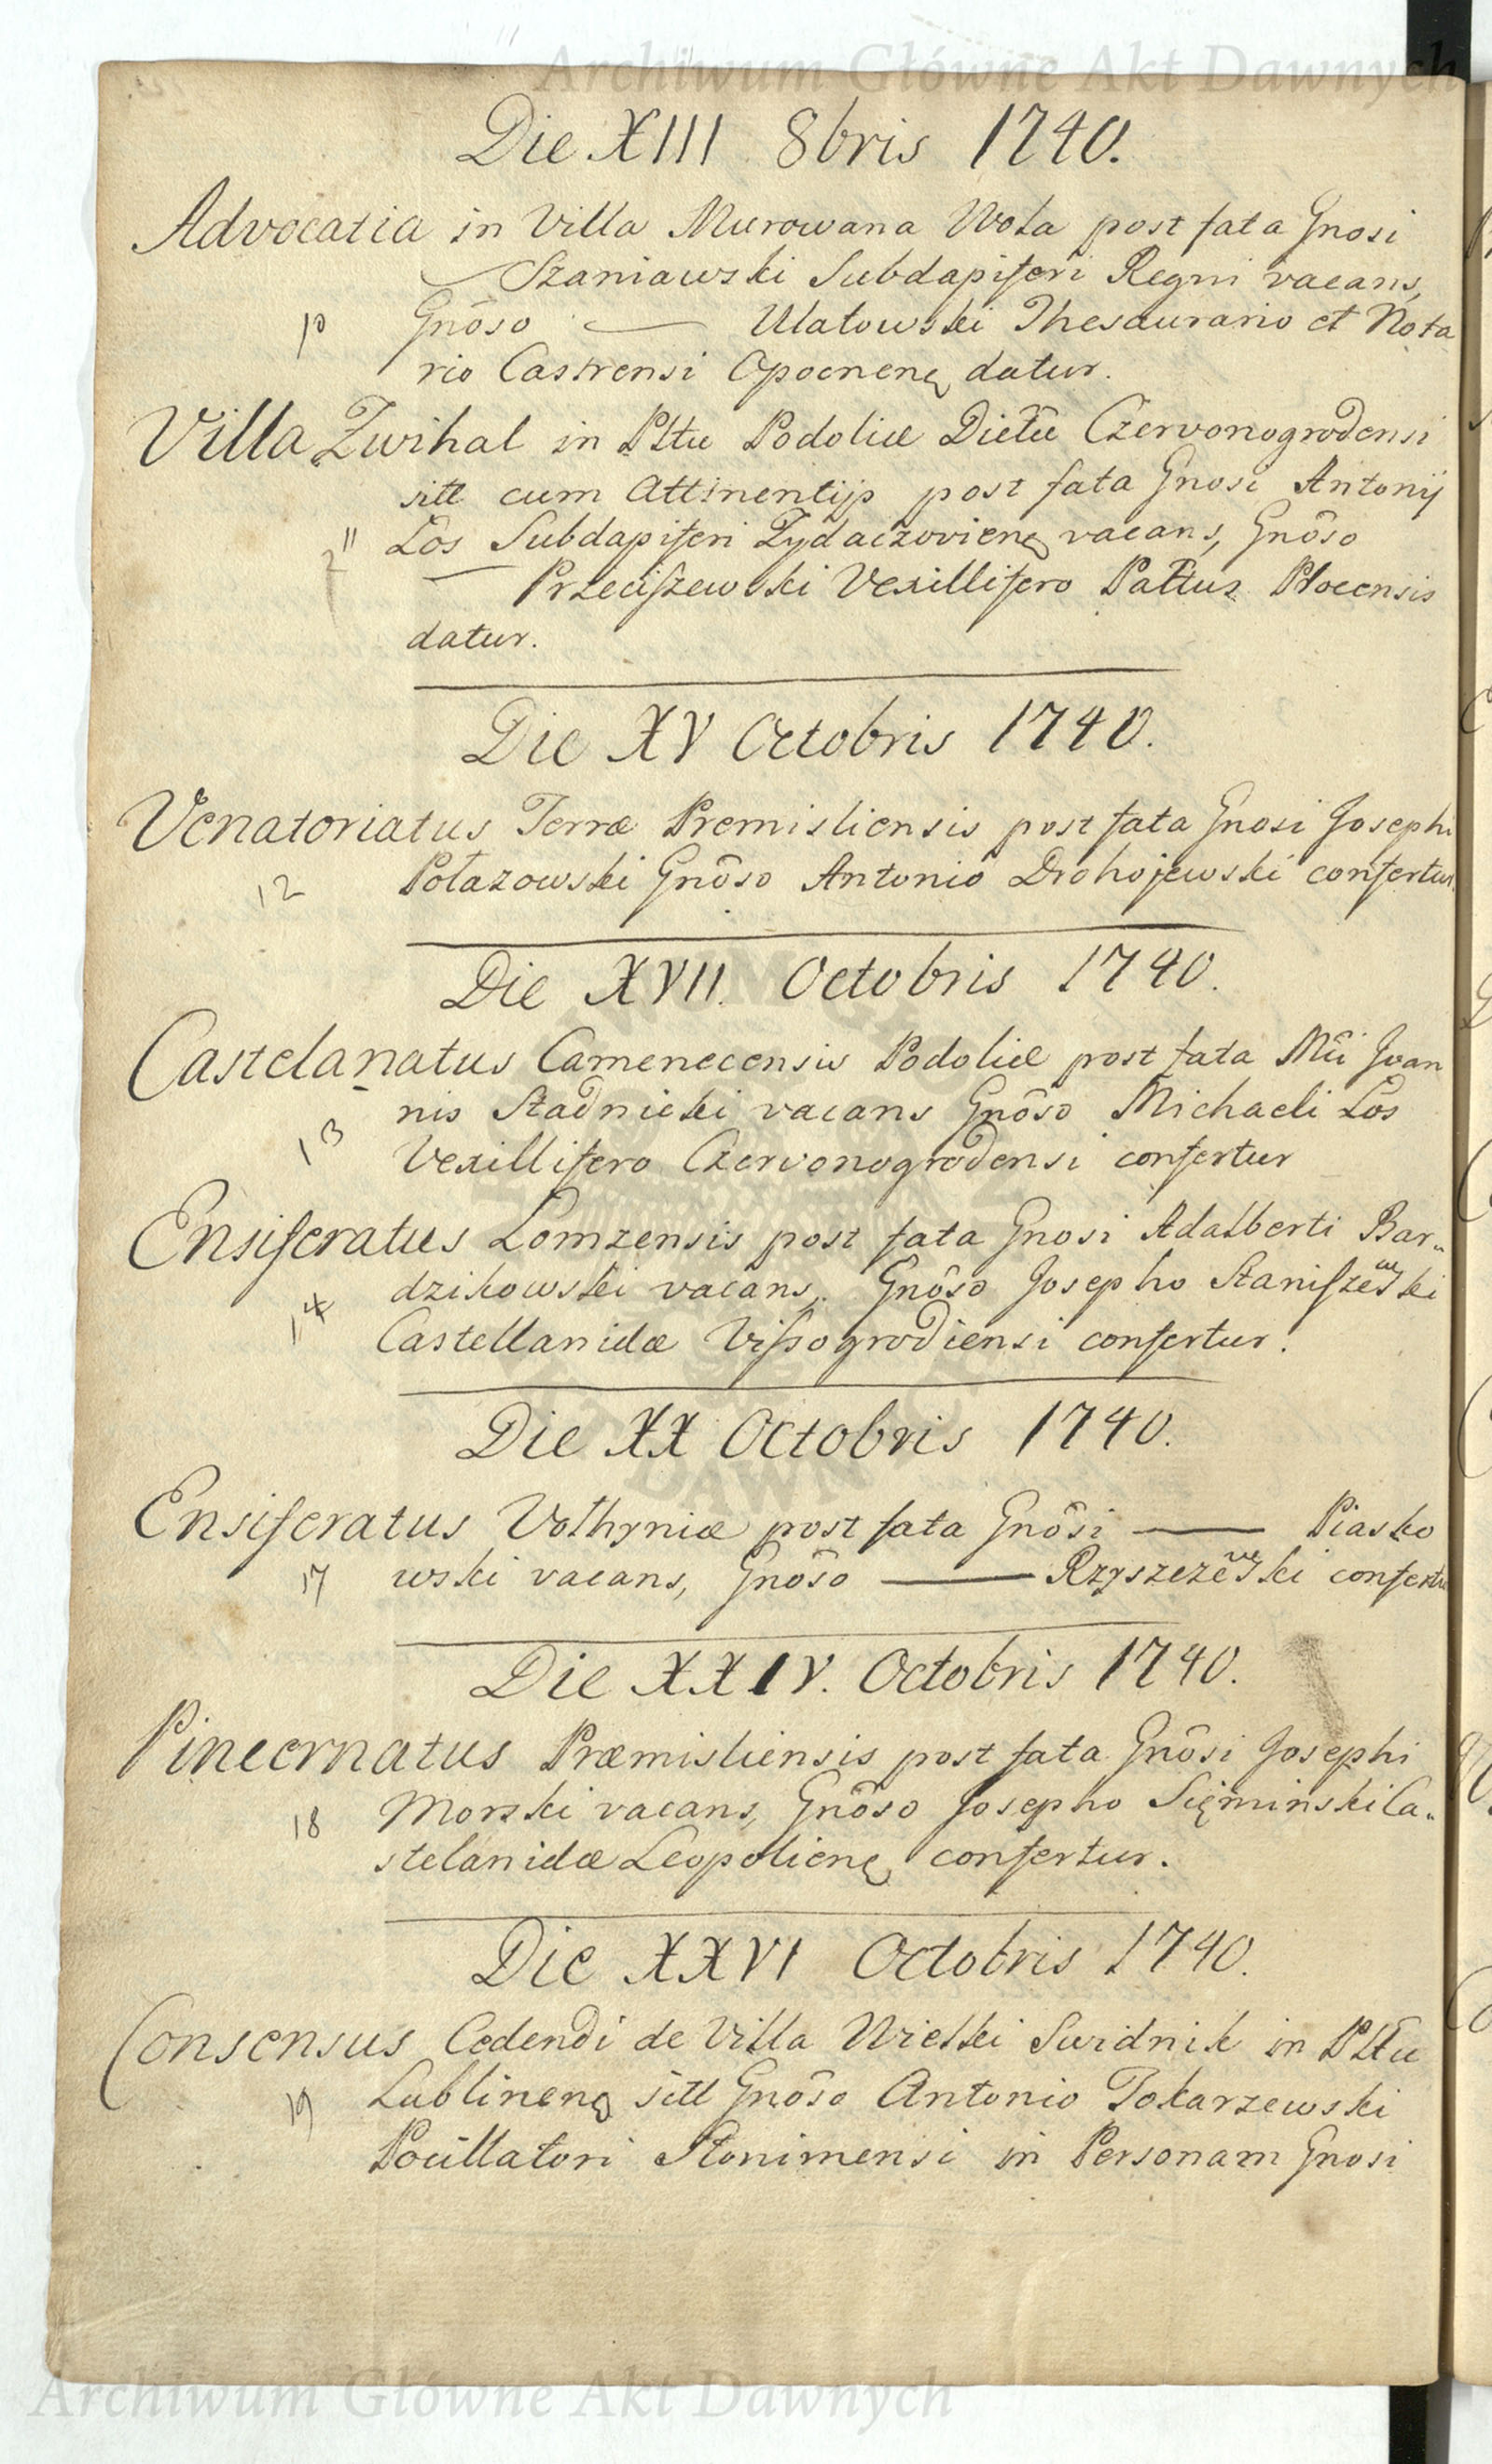 Archiwum Główne Akt Dawnych
Die XIII 8bris 1740.
Advocatia in Villa Murowana Wola post fata Gnosi
Szaniawski Subdapiferi Regni vacans,
10 Gnôso — Ulatowski Thesaurario et Nota
rio Castrensi Opocnenę datur.
Villa Zwihal in Pltu Podoliæ Dictu Czervonogrodensi
sitt cum Attinentijs post fata Gnosi Antonij
11 Łos Subdapiferi Zydaczovienę vacans, Gnôso
— Przeciszewski Vexillifero Paltus Płocensis
datur.
Die XV Octobris 1740.
Venatoriatus Terræ Premisliensis post fata Gnosi Josephi
12 Połazowski Gnôso Antonio Drohojewski confertur
Die XVII. Octobris 1740.
Castelanatus Camenecensis Podoliæ post fata Mci Joan
13 nis Stadnicki vacans Gnôso Michaeli Łos
Vexillifero Czervonogrodensi confertur
Ensiferatus Lomzensis post fata Gnosi Adalberti Bar-
14 dzikowski vacans, Gnôso Josepho Staniszewski
Castellanidæ Vissogrodiensi confertur.
Die XX Octobris 1740.
Ensiferatus Volhyniæ post fata Gnôsi — Piasko
17 wski vacans, Gnôso — Rzyszczewski confertur
Die XXIV. Octobris 1740.
Pincernatus Præmisliensis post fata Gnôsi Josephi
18 Morski vacans, Gnôso Josepho Sięminski Ca-
stelanidæ Leopolienę confertur.
Die XXVI Octobris 1740.
Consensus Cedendi de Villa Wielki Swidnik in Pltu
19 Lublinenę sitt Gnôso Antonio Tokarzewski
Pocillatori Słonimensi in Personam Gnosi
Archiwum Główne Akt Dawnych